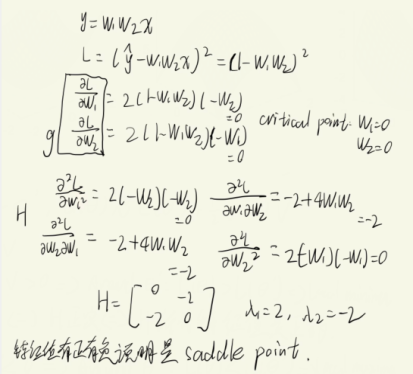 y = w₁w₂x
L = (ŷ - w₁w₂x)² = (1 - w₁w₂)²
g ∂L/∂w₁ = 2(1-w₁w₂)(-w₂) =0
∂L/∂w₂ = 2(1-w₁w₂)(-w₁) =0
critical point: w₁=0
w₂=0
H ∂²L/∂w₁² = 2(-w₂)(-w₂) =0 ∂²L/∂w₁∂w₂ = -2+4w₁w₂ =-2
∂²L/∂w₂∂w₁ = -2+4w₁w₂ =-2 ∂²L/∂w₂² = 2(-w₁)(-w₁)=0
H = [0 -2
-2 0] λ₁=2, λ₂=-2
特征值有正有负说明是 saddle point.